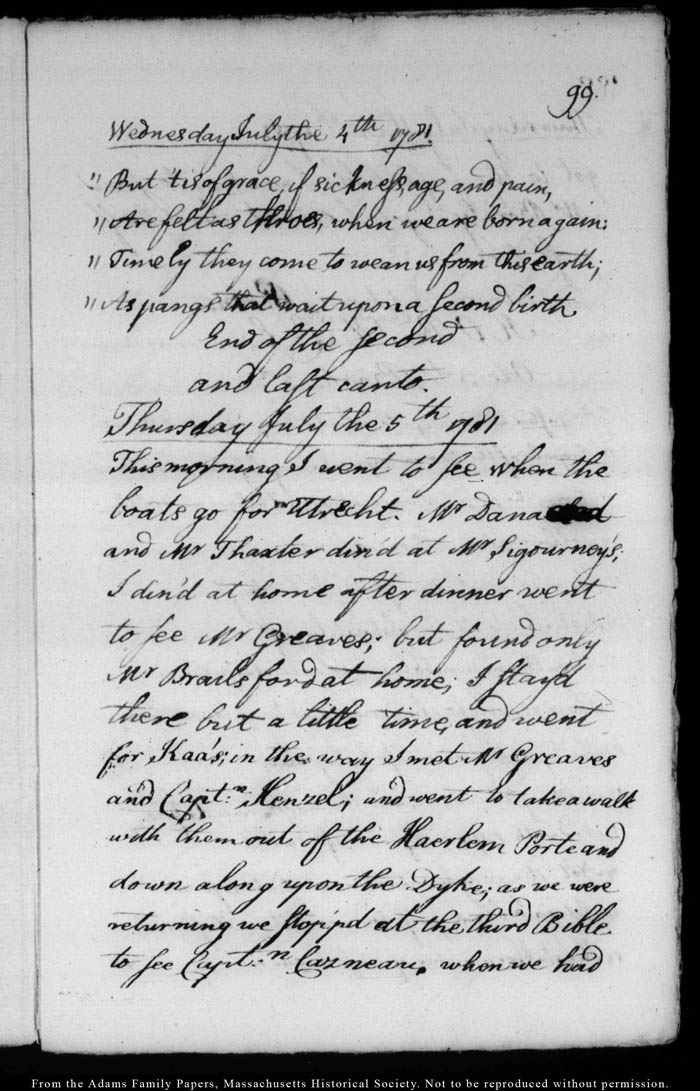 99.
Wednesday July the 4th 1781.
" But tis of grace, if sickness, age, and pain,
" Are felt as throes, when we are born again:
" Timely they come to wean us from this earth;
" As pangs that wait upon a second birth
End of the second
and last canto.
Thursday July the 5th 1781
This morning I went to see when the
boats go for Utrecht. Mr Dana
and Mr Thaxter din'd at Mr Sigourney's;
I din'd at home after dinner went
to see Mr Greaves; but found only
Mr Brailsford at home; I stay'd
there but a little time, and went
for Kaa's; in the way I met Mr Greaves
and Captn Henzel; and went to take a walk
with them out of the Haerlem Porte and
down along upon the Dyke; as we were
returning we stop'pd at the third Bible
to see Captn Cazneau, when we had
From the Adams Family Papers, Massachusetts Historical Society. Not to be reproduced without permission.